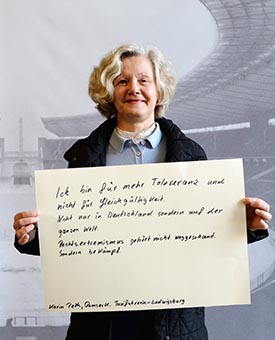 Ich bin für mehr Toleranz und
nicht für Gleichgültigkeit.
Nicht nur in Deutschland sondern auf der
ganzen Welt.
Rechtsextremismus gehört nicht weggeschaut.
Sondern bekämpft.
Karin Taxifahrerin-Ludwigsburg